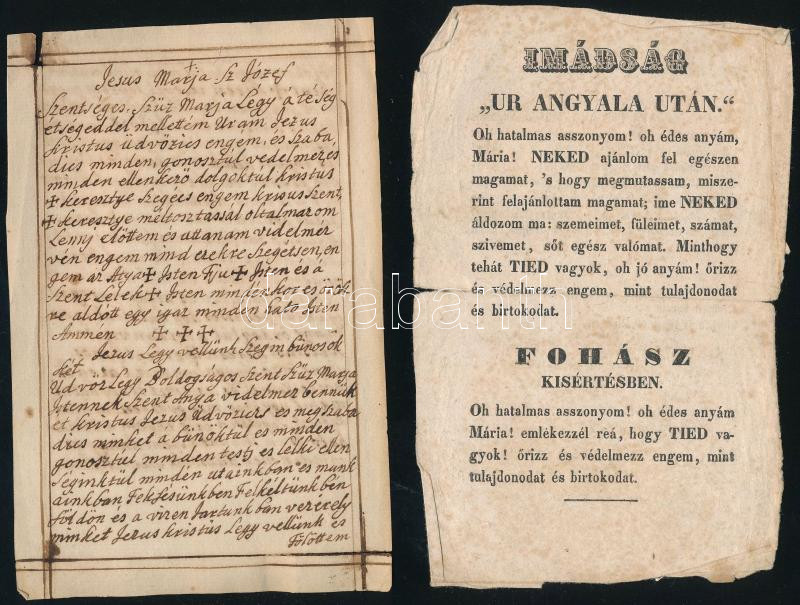 Jesus Marja Sz József
Szentséges Szüz Marja Légy á te Ség
étségeddel mellettem Uram Jezus
Kristus üdvözics engem, es Szaba,
dics minden, gonosztul vedelmezes
minden ellenkerö dolgoktul Kristus
✝ keresztye Szegécs engem krisus Szent,
✝ keresztye méltosztassál oltalmarom
Lennj élöttem és attanam videlmér
vén engem mind erekre Szegétsen, en
gem az Atya ✝ Isten Fju ✝ Isten és a
Szent Lélek ✝ Isten mindenkor es örök
ve áldótt egy igaz minden hato Isten
Ammén ✝ ✝ ✝
Jezus Légy vellünk Szegin bünösök
két
Udvöz Légy Boldogságos Szent Szüz Marja
Istennek Szent Anya videlmez bennün
et Kristus Jezus Udvözics es meg Szaba
dics minket a bünöktül es minden
gonosztul minden testj es Lelki ellen
Séginktul minden utainkban es munk
áinkban Fekfésünkben Felkéltünkben
Földön és a vizen Jartunkban vezérely
minket Jezus Kristus Légy vellünk es
Fölöttem
IMÁDSÁG
„UR ANGYALA UTÁN.“
Oh hatalmas asszonyom! oh édes anyám,
Mária! NEKED ajánlom fel egészen
magamat, 's hogy megmutassam, misze-
rint felajánlottam magamat; ime NEKED
áldozom ma: szemeimet, füleimet, számat,
szivemet, sőt egész valómat. Minthogy
tehát TIED vagyok, oh jó anyám! őrizz
és védelmezz engem, mint tulajdonodat
és birtokodat.
FOHÁSZ
KISÉRTÉSBEN.
Oh hatalmas asszonyom! oh édes anyám
Mária! emlékezzél reá, hogy TIED va-
gyok! őrizz és védelmezz engem, mint
tulajdonodat és birtokodat.
darabanth